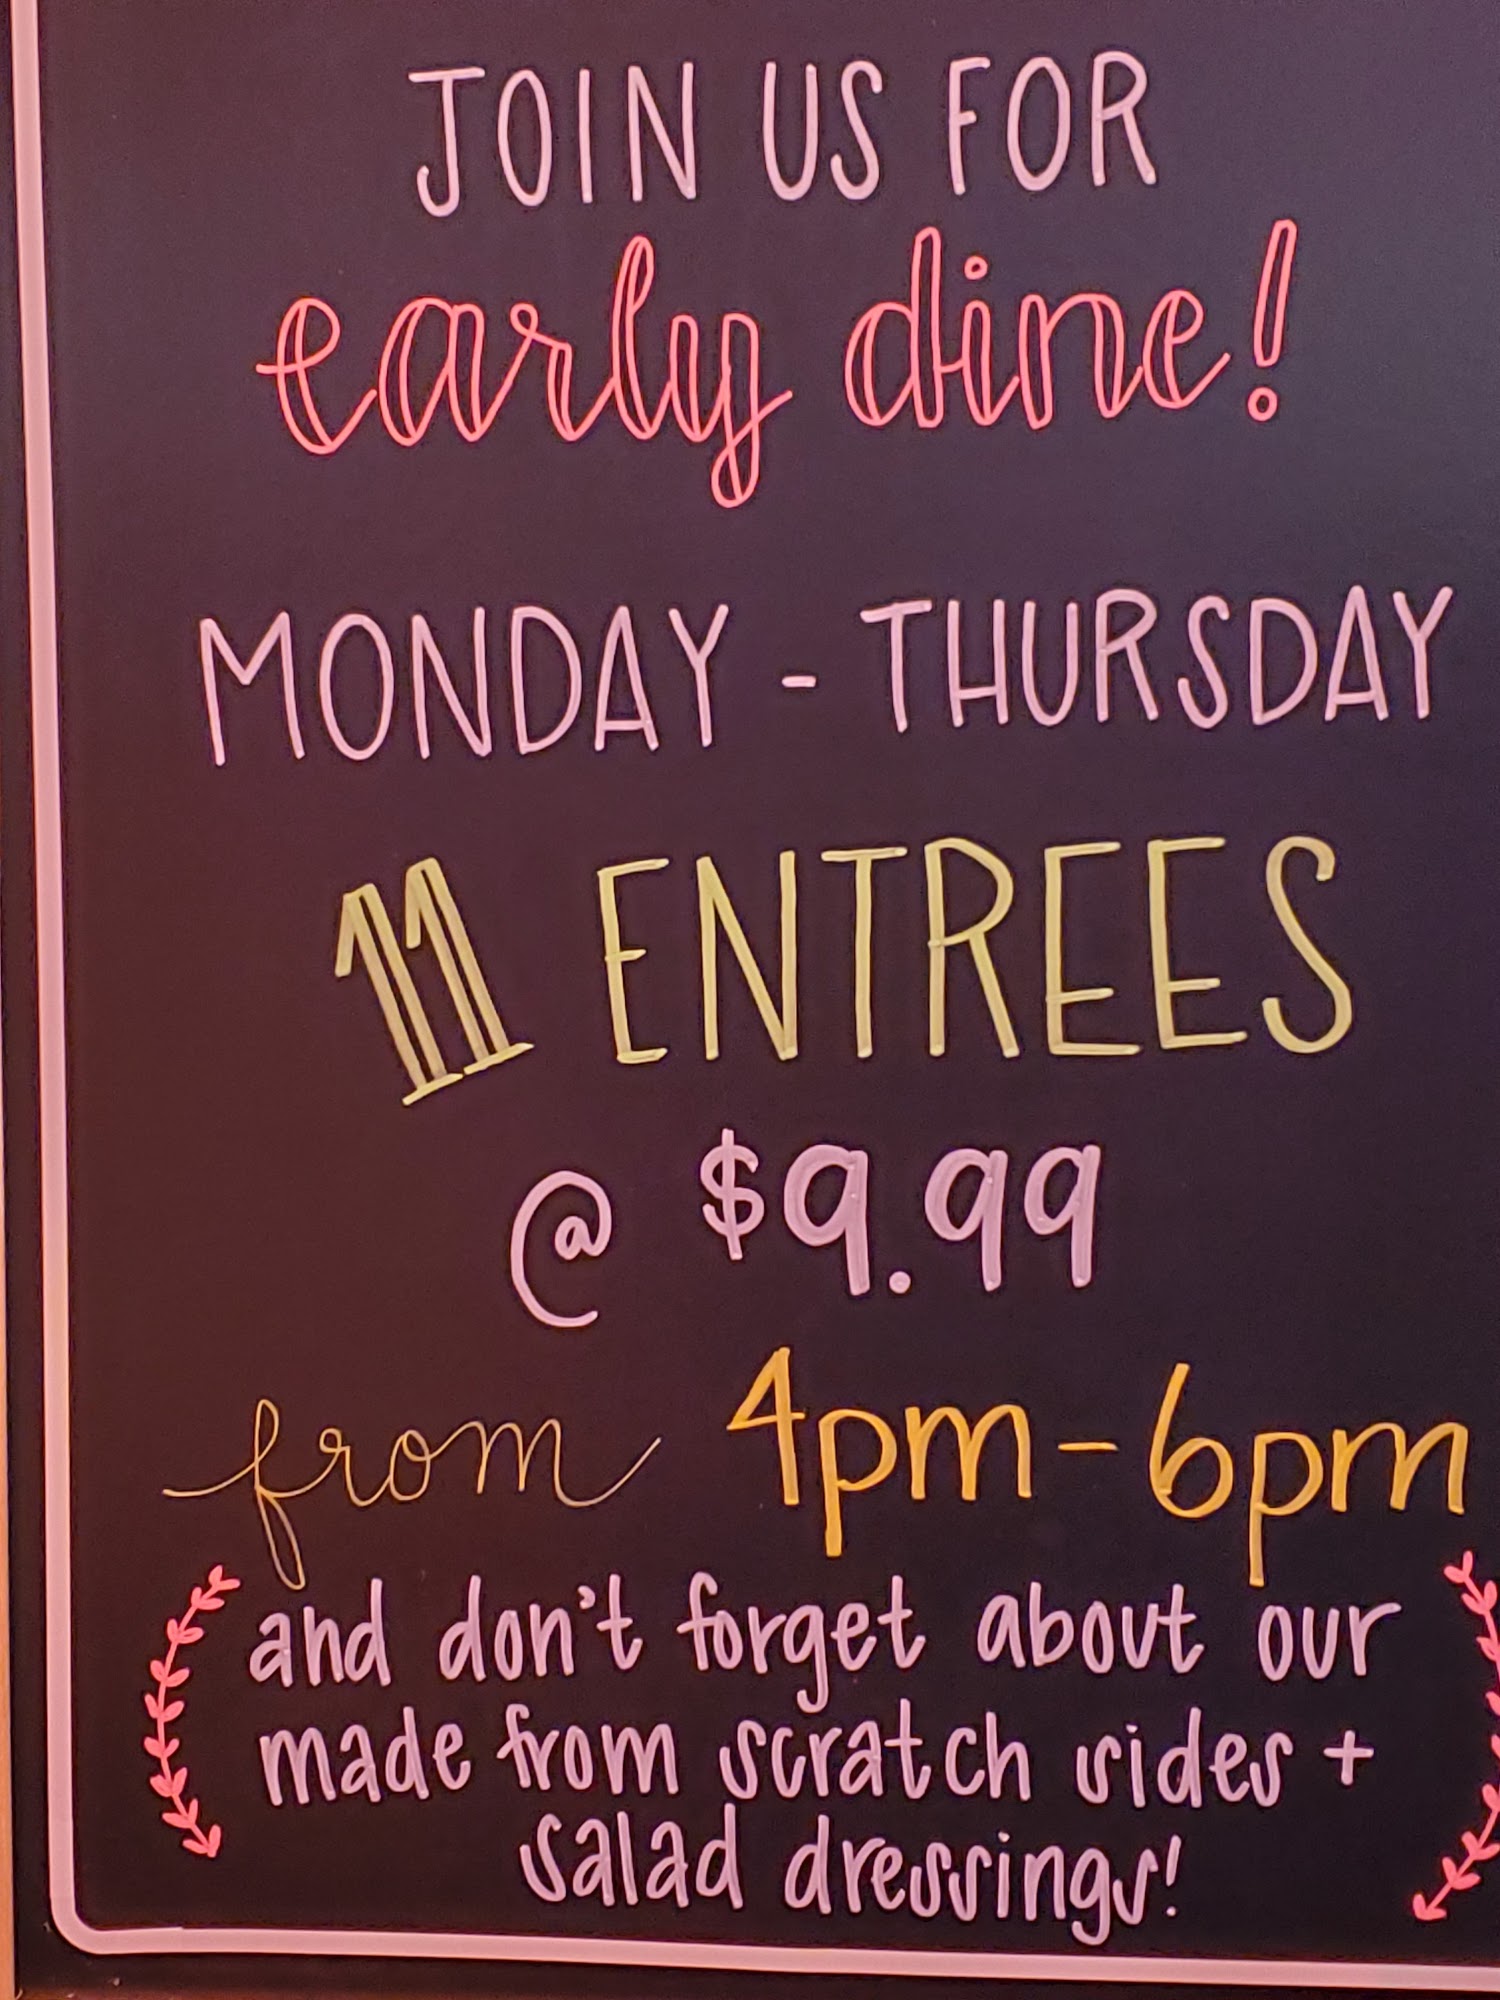 JOIN US FOR
early dine!
MONDAY - THURSDAY
11 ENTREES
@ $9.99
from 4pm-6pm
and don't forget about our
made from scratch sides +
salad dressings!